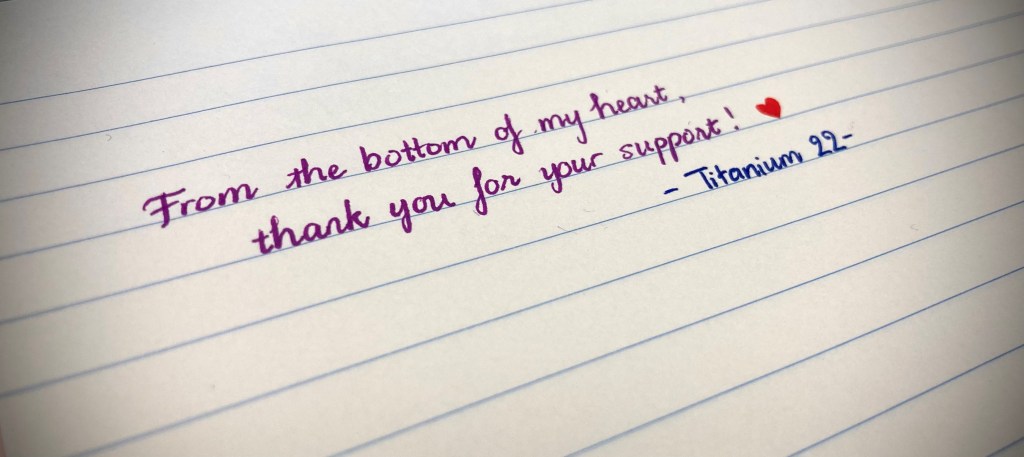 From the bottom of my heart,
thank you for your support! ❤
- Titanium 22-